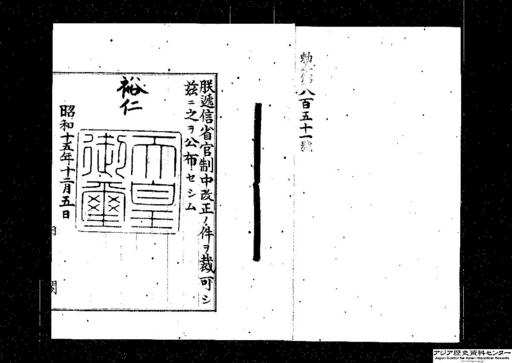 勅令第八百五十一號
朕遞信省官制中改正ノ件ヲ裁可シ
茲ニ之ヲ公布セシム
裕仁
天皇御璽
昭和十五年十二月五日
内閣
アジア歴史資料センター
Japan Center for Asian Historical Records